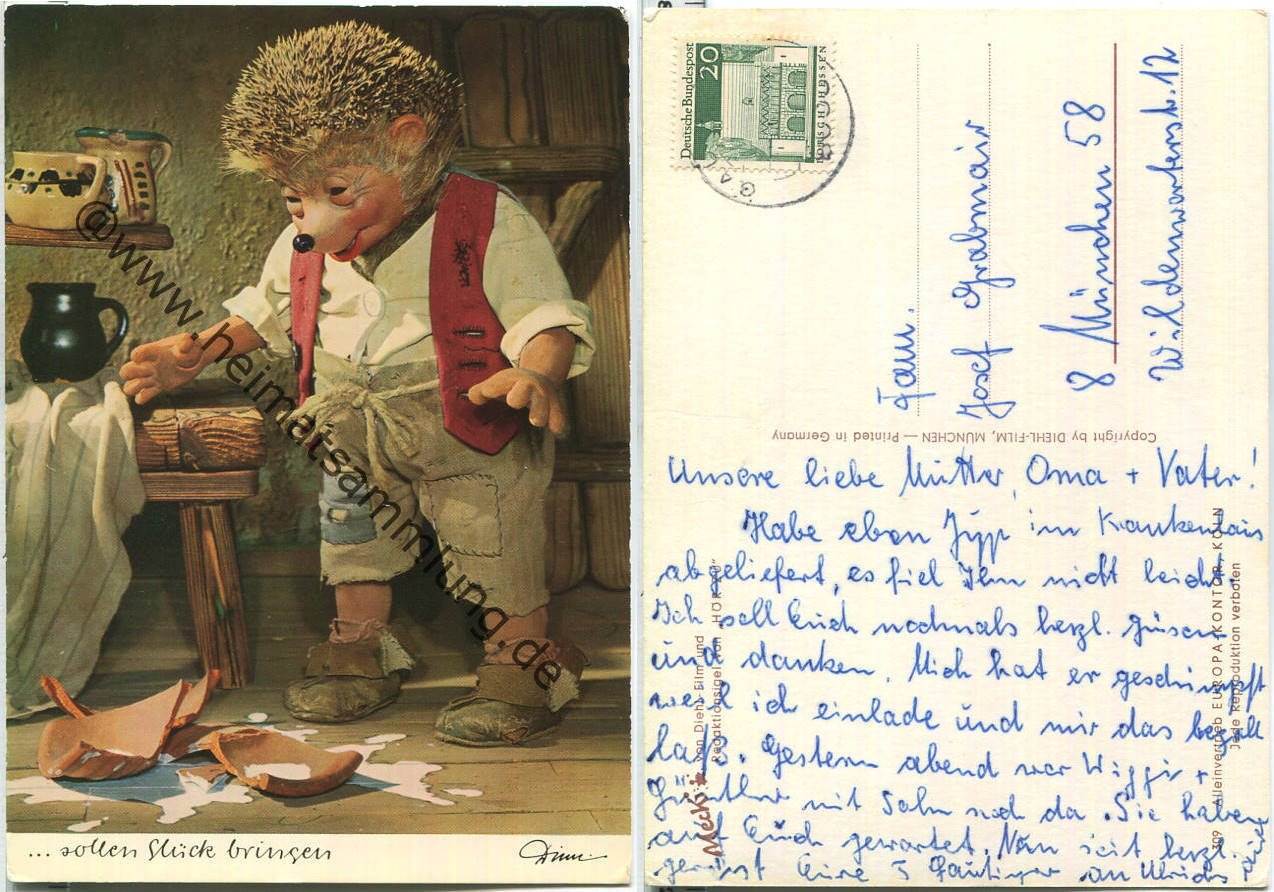 ... sollen Glück bringen
Diehl
@www.heimatsammlung.de
Deutsche Bundespost
20
LORSCH HESSEN
Fam.
Josef Grabmair
8 München 58
Wildenwarterstr. 12
Copyright by DIEHL-FILM, MÜNCHEN — Printed in Germany
Unsere liebe Mutter, Oma + Vater!
Habe eben Jüpp im Krankenhaus
abgeliefert, es fiel Ihm nicht leicht.
Ich soll Euch nochmals herzl. grüssen
und danken. Mich hat er geschimpft
weil ich einlade und mir das bezahlt
laß. Gestern abend war Wiggi +
Günther mit Sohn noch da. Sie haben
auf Euch gewartet. Nun seit herzl.
gegrüsst Eure 5 Gautinger
Mecki * von Diehl-Film und
Redaktionsigel von „HÖR ZU"
309 Alleinvertrieb EUROPA-KONTOR, KÖLN
Jede Reproduktion verboten